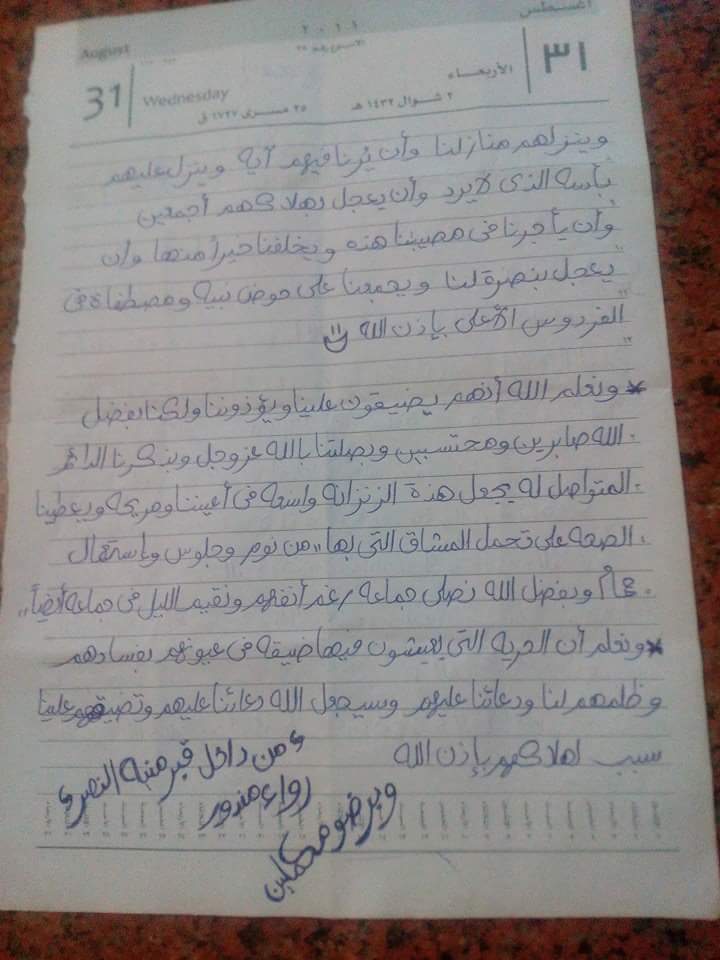 August
31
Wednesday
أغسطس
٣١
الأربعاء
٢٠١١
٢ شوال ١٤٣٢ هـ
٢٥ مسرى ١٧٢٧ ق
وينزلهم منازلنا وأن يُرنا فيهم آية وينزل عليهم
بأسه الذى لا يرد وأن يعجل بهلاكهم أجمعين
وأن يأجرنا فى مصيبتنا هذه ويخلفنا خيراً منها وأن
يعجل بنصرة لنا ويجمعنا على حوض نبيه ومصطفاه فى
الفردوس الأعلى بإذن الله
* ونعلم الله أنهم يضيقون علينا ويؤذوننا ولكنا بفضل
الله صابرين ومحتسبين وبصلتنا بالله عز وجل وبذكرنا الدائم
المتواصل له يجعل هذة الزنزانه واسعه فى أعيننا ومريحه ويعطينا
الصحه على تحمل المشاق التى بها ،، من نوم وجلوس وإستعمال
حمام وبفضل الله نصلى جماعة رغم أنفهم ونقيم الليل فى جماعه أيضاً ،،
* ونعلم أن الحريه التى يعيشون فيها ضيقه فى عيونهم بفسادهم
وظلمهم لنا ودعائنا عليهم وسيجعل الله دعائنا عليهم وتضيقهم علينا
سبب اهلاكهم بإذن الله
من داخل قبر منية النصر
رواء مندور
وبرضو مكملين